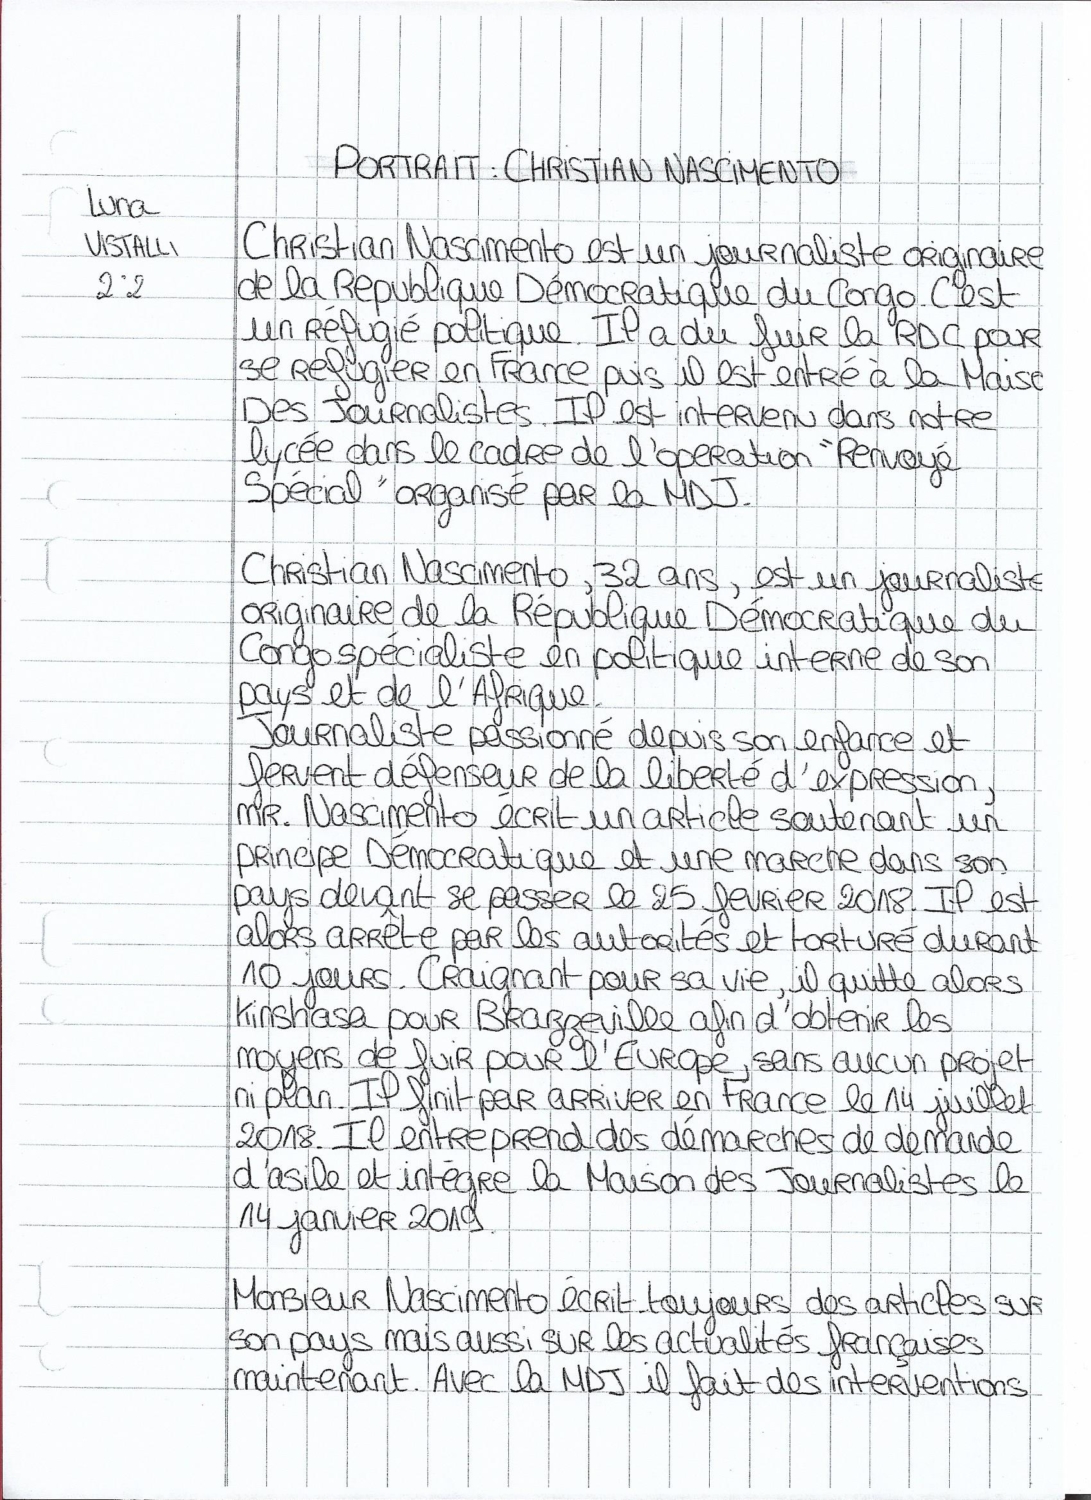 PORTRAIT : CHRISTIAN NASCIMENTO
Luna
VISTALLI
2°2
Christian Nascimento est un journaliste originaire
de la Republique Démocratique du Congo. C'est
un réfugié politique. Il a du fuir la RDC pour
se refugier en France puis il est entré à la Maiso
Des Journalistes. Il est intervenu dans notre
lycée dans le cadre de l'operation "Renvoyé
Spécial" organisé par la MDJ.
Christian Nascimento, 32 ans, est un journaliste
originaire de la République Démocratique du
Congo spécialiste en politique interne de son
pays et de l'Afrique.
Journaliste passionné depuis son enfance et
fervent défenseur de la liberté d'expression,
mr. Nascimento écrit un article soutenant un
principe Démocratique et une marche dans son
pays devant se passer le 25 fevrier 2018. Il est
alors arrête par les autorités et torturé durant
10 jours. Craignant pour sa vie, il quitte alors
Kinshasa pour Brazzeville afin d'obtenir les
moyens de fuir pour l'Europe, sans aucun projet
ni plan. Il finit par arriver en France le 14 juillet
2018. Il entreprend des démarches de demande
d'asile et intègre la Maison des Journalistes le
14 janvier 2019
Monsieur Nascimento écrit toujours des articles sur
son pays mais aussi sur les actualités françaises
maintenant. Avec la MDJ il fait des interventions